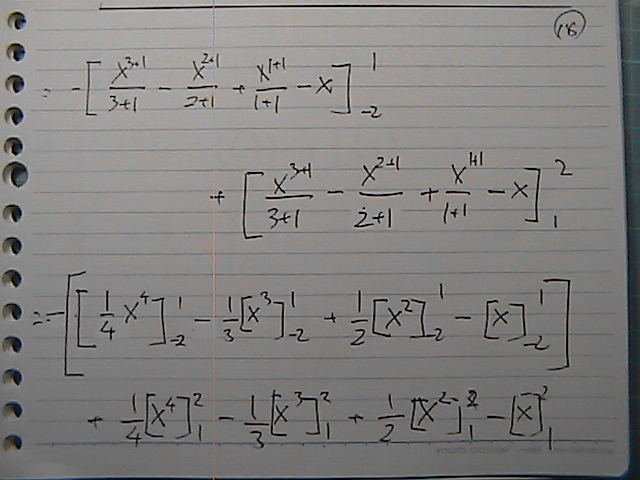 18
= - [ x^{3+1}/3+1 - x^{2+1}/2+1 + x^{1+1}/1+1 - x ]_{-2}^{1}
+ [ x^{3+1}/3+1 - x^{2+1}/2+1 + x^{1+1}/1+1 - x ]_{1}^{2}
= - [ [ 1/4 x^4 ]_{-2}^{1} - 1/3 [ x^3 ]_{-2}^{1} + 1/2 [ x^2 ]_{-2}^{1} - [ x ]_{-2}^{1} ]
+ 1/4 [ x^4 ]_{1}^{2} - 1/3 [ x^3 ]_{1}^{2} + 1/2 [ x^2 ]_{1}^{2} - [ x ]_{1}^{2}